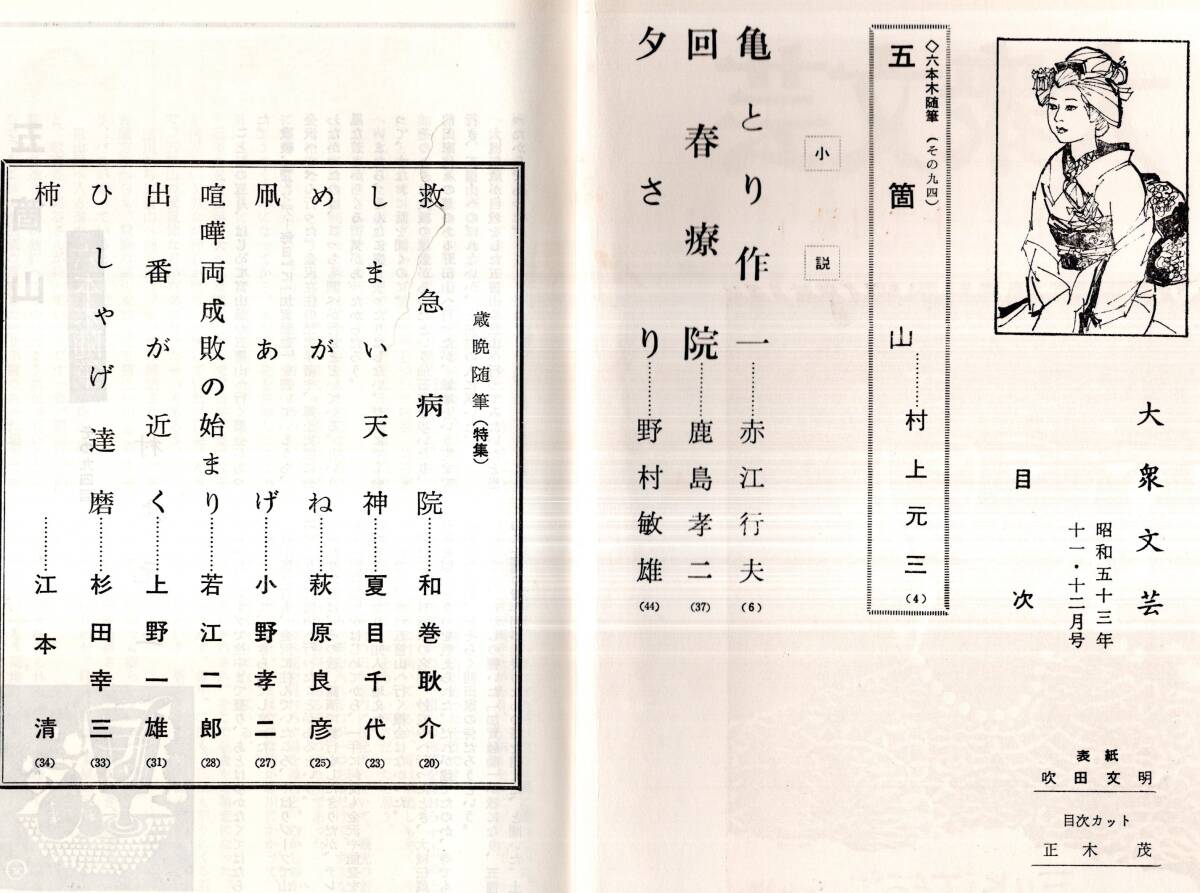 大衆文芸
昭和五十三年
十一・十二月号
目次
表紙
吹田文明
目次カット
正木茂
◇六本木随筆(その九四)
五箇山……村上元三(4)
小説
亀とり作一……赤江行夫(6)
回春療院……鹿島孝二(37)
夕さり……野村敏雄(44)
歳晩随筆(特集)
救急病院……和巻耿介(20)
しまい天神……夏目千代(23)
めがね……萩原良彦(25)
凧あげ……小野孝二(27)
喧嘩両成敗の始まり……若江二郎(28)
出番が近く……上野一雄(31)
ひしゃげ達磨……杉田幸三(33)
柿……江本清(34)
五箇山